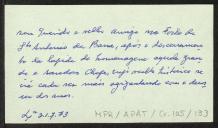 seu querido e velho amigo no Forte de
Stº António da Barra, após o descerramento
da lápide de homenagem aquele grande
e saudoso Chefe, cujo vulto histórico se
irá cada vez mais agigantando com o decor-
rer dos anos.
Lxª 21.7.73
MPR / APAT / Cx. 105 / 133